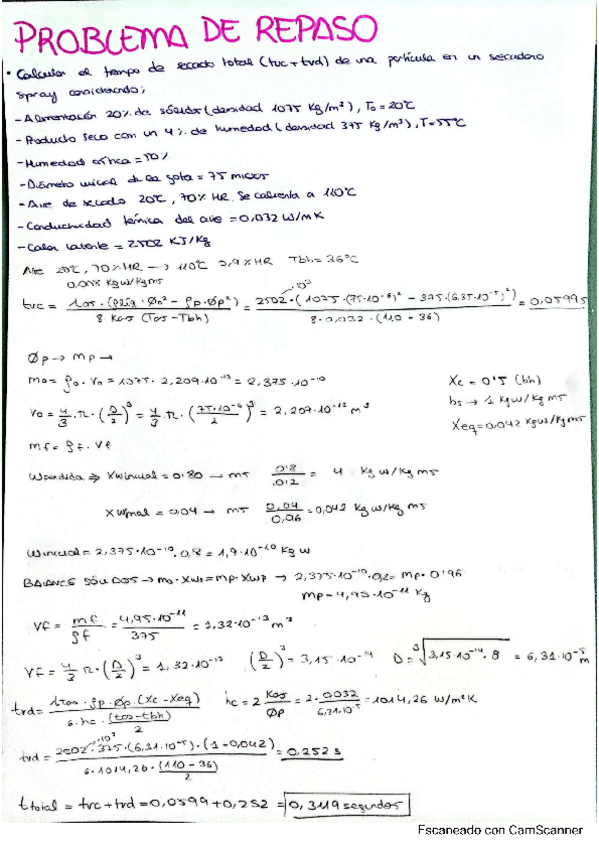 PROBLEMA DE REPASO
• Calcular el tiempo de secado total (tvc + tvd) de una partícula en un secadero
spray considerando;
- Alimentación 20% de sólidos (densidad 1075 Kg/m³), T₀ = 20ºC
- Producto seco con un 4% de humedad (densidad 375 Kg/m³), T=55ºC
- Humedad crítica = 50%
- Diámetro inicial de la gota = 75 micras
- Aire de secado 20ºC, 70% HR. Se calienta a 110ºC
- Conductividad térmica del aire = 0,032 W/mK
- Calor latente = 2502 KJ/Kg
Aire 20ºC, 70% HR → 110ºC 0,9% HR Tbh = 36ºC
Kgw/Kgms
10³
tvc = (ρliq · Øo² - ρp · Øp²) / 8 Kas (Tas - Tbh) = 2502 · (1075 · (75·10⁻⁶)² - 375 · (6,35·10⁻⁵)²) / 8 · 0,032 · (110 - 36) = 0,0599s
Øp → mp →
mo = ρo · Vo = 1075 · 2,209·10⁻¹³ = 2,375·10⁻¹⁰
Xc = 0'5 (bh)
Vo = 4/3 · π · (D/2)³ = 4/3 · π · (75·10⁻⁶/2)³ = 2,209·10⁻¹³ m³
bs → 1 Kgw/Kgms
Xeq = 0,042 Kgw/Kgms
mf = ρf · Vf
Wperdida ⇒ Xwinicial = 0'80 → ms 0'8/0'2 = 4 Kgw/Kgms
Xwfinal = 0,04 → ms 0,04/0,96 = 0,042 Kgw/Kgms
Winicial = 2,375·10⁻¹⁰ · 0,8 = 1,9·10⁻¹⁰ Kgw
BALANCE SÓLIDOS → mo · Xws = mp · Xwp → 2,375·10⁻¹⁰ · 0,2 = mp · 0'96
mp = 4,95·10⁻¹¹ Kg
Vf = mf/ρf = 4,95·10⁻¹¹/375 = 1,32·10⁻¹³ m³
Vf = 4/3 π · (D/2)³ = 1,32·10⁻¹³ (D/2)³ = 3,15·10⁻¹⁴ D = ³√3,15·10⁻¹⁴ · 8 = 6,31·10⁻⁵ m
tvd = λTas · ρp · Øp · (Xc - Xeq) / 6 · hc · (tas - tbh)/2 hc = 2 Kas/Øp = 2 · 0,032/6,31·10⁻⁵ = 1014,26 W/m²K
tvd = 2502·10³ · 375 · (6,31·10⁻⁵) · (1 - 0,042) / 6 · 1014,26 · (110 - 36)/2 = 0,252 s
ttotal = tvc + tvd = 0,0599 + 0,252 = 0,3119 segundos
Escaneado con CamScanner